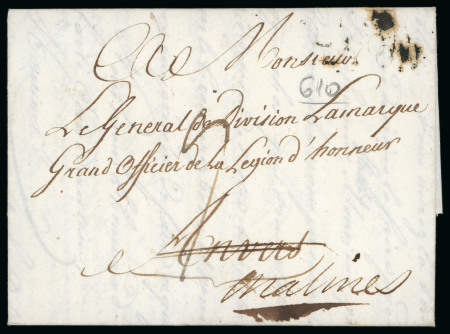 A Monsieur
610
Le General de Division Lamarque
Grand Officier de la Legion d'honneur
a Anvers
malines